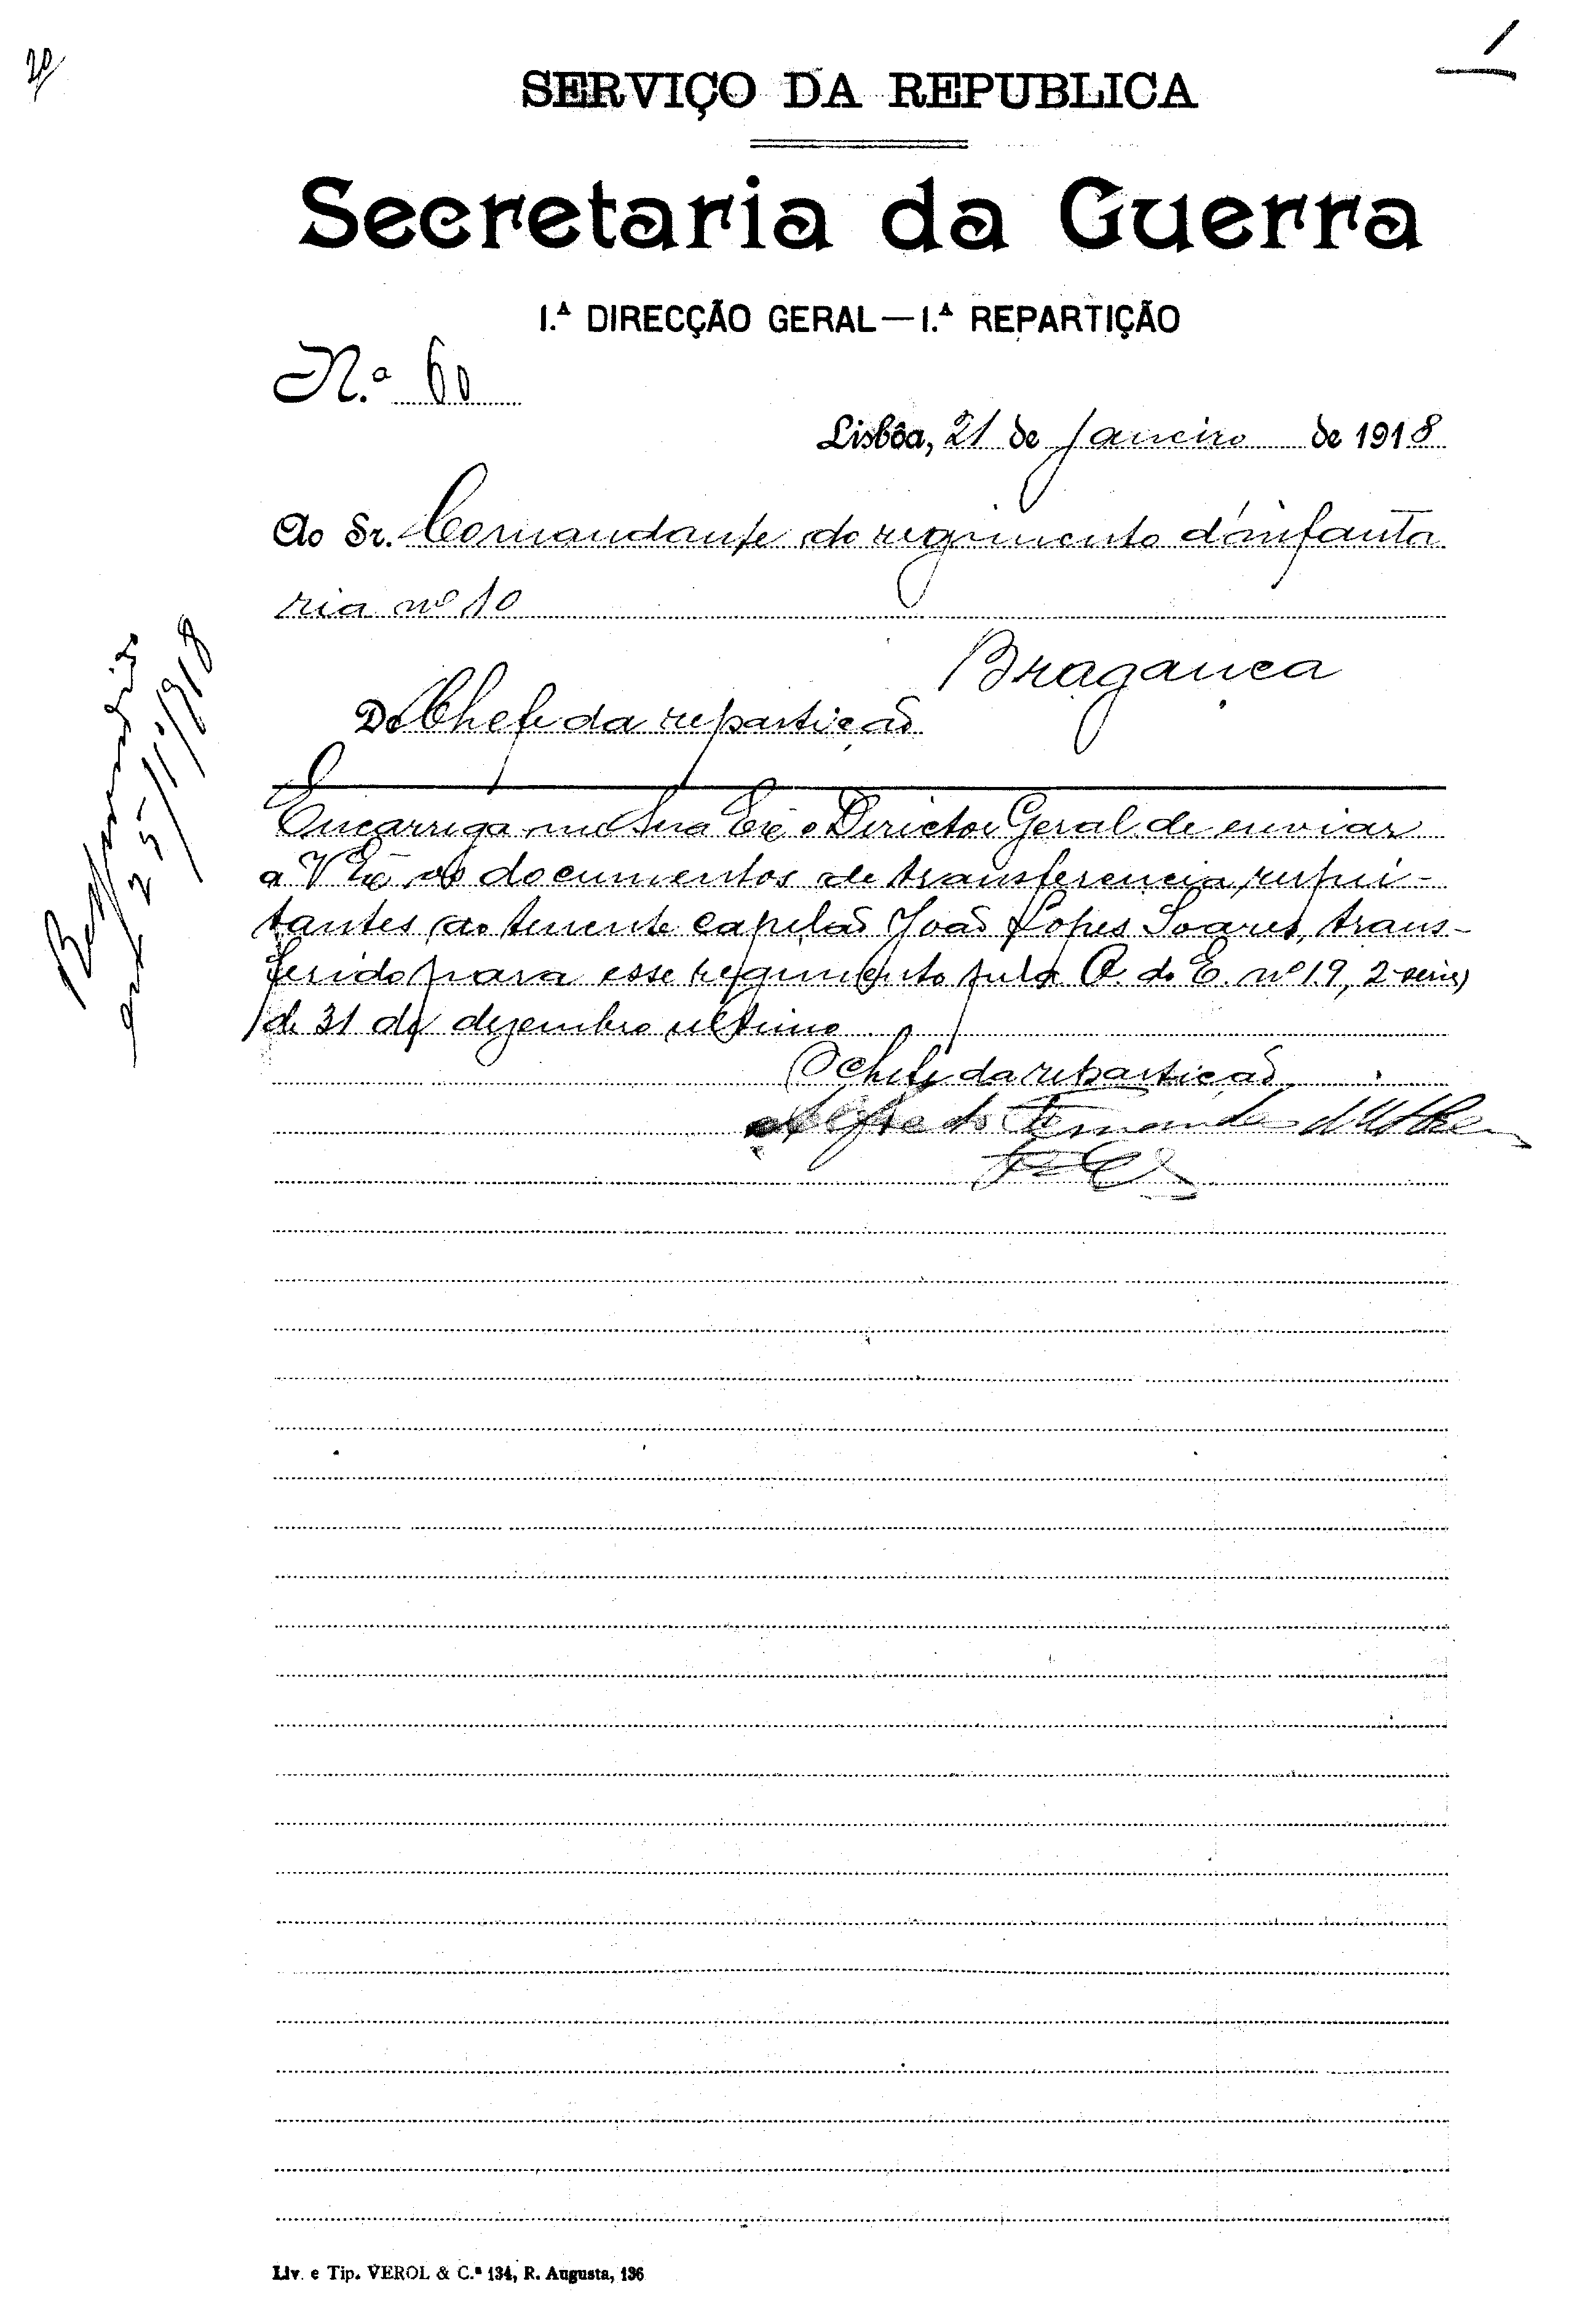 20
1
SERVIÇO DA REPUBLICA
Secretaria da Guerra
1.ª DIRECÇÃO GERAL—1.ª REPARTIÇÃO
N.º 60
Lisbôa, 21 de Janeiro de 1918
Ao Sr. Comandante do regimento d'infanta
ria nº 10
Bragança
Do Chefe da repartição
Encarrega-me Sua Exª o Director Geral de enviar
a V Exª os documentos de transferencia, respei-
tantes ao tenente capelão João Lopes Soares, trans-
ferido para esse regimento pela O. do E. nº 19, 2ª serie,
de 31 de dezembro ultimo
O Chefe da repartição
Alfredo Fernandes
Respondido
em 25/1/918
Liv. e Tip. VEROL & C.ª 134, R. Augusta, 136